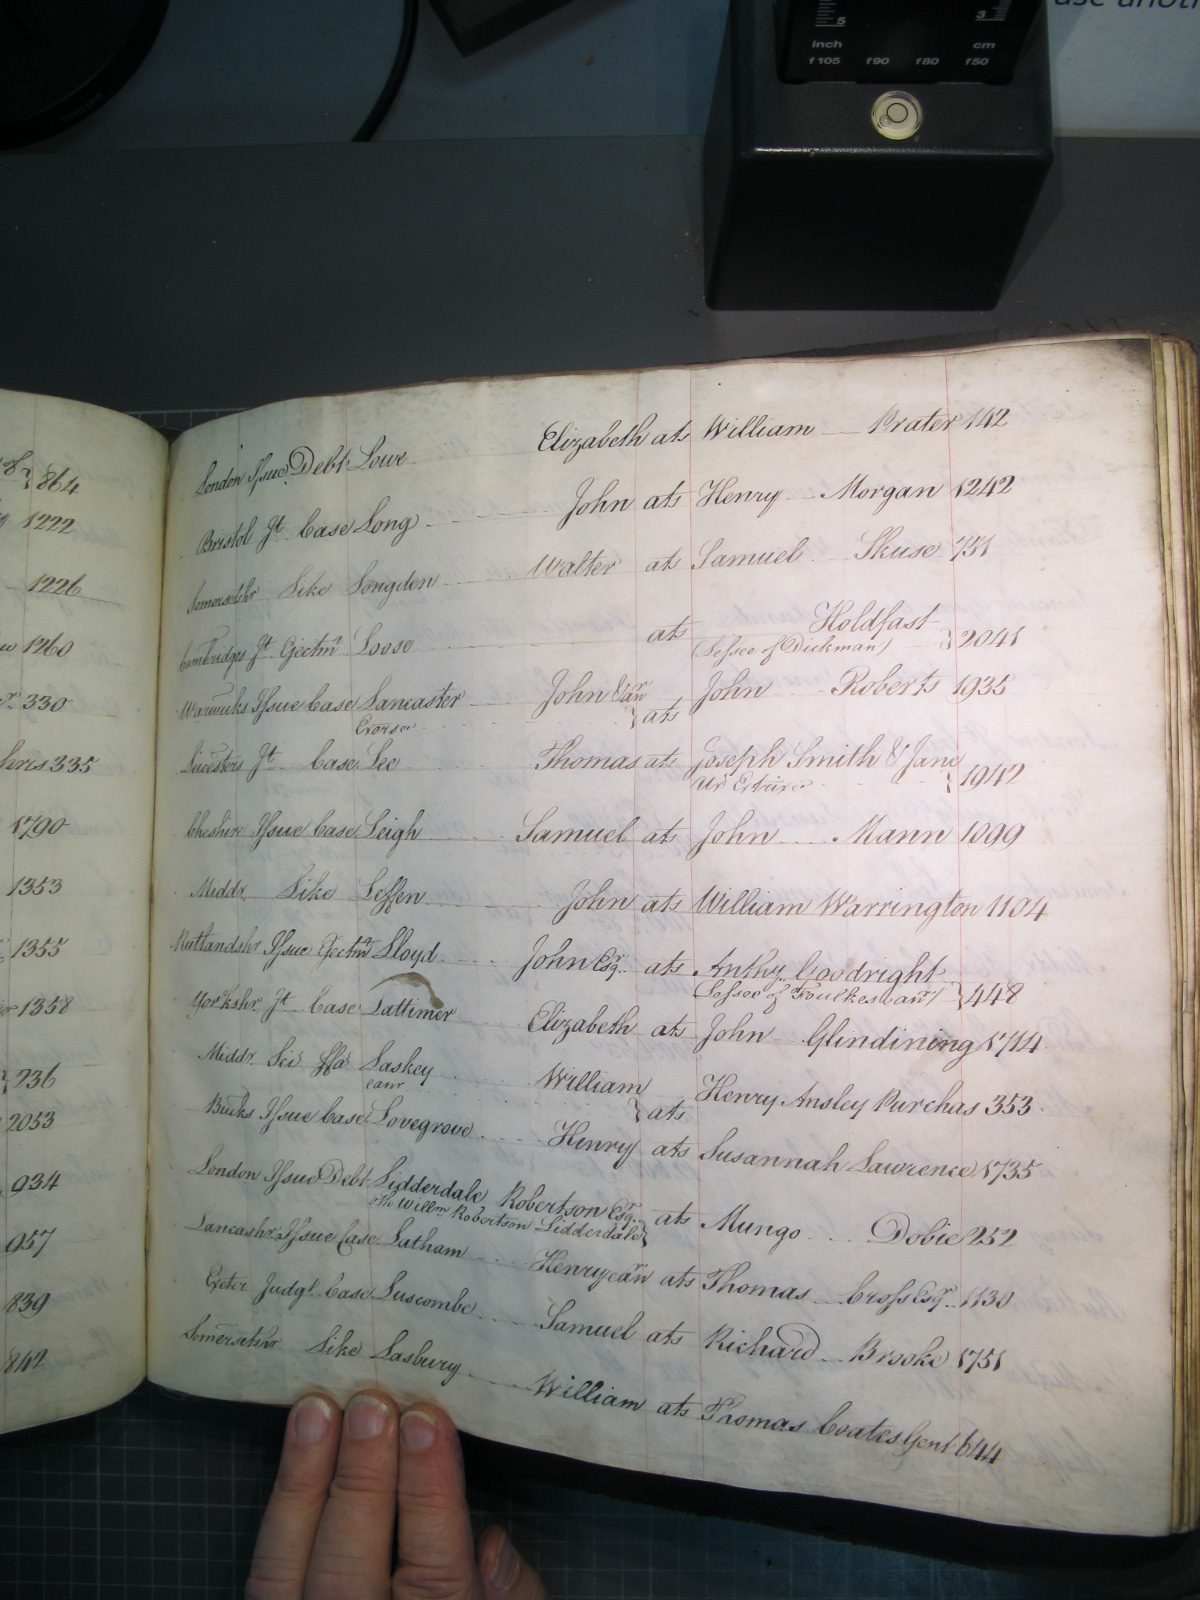 inch cm
f105 f90 f80 f50
5 3
864
1222
1226
1260
330
335
1790
1353
1355
1358
236
2053
934
957
839
842
London Issue Debt Lowe Elizabeth ats William Prater 142
Bristol Jt. Case Long John ats Henry Morgan 1242
Somersetshr Like Longden Walter ats Samuel Skuse 751
Cambridges Jt. Ejectmt Loose ats Holdfast
(Lessee of Dickman) } 2041
Warwicks Issue Case Lancaster John & an.r } ats John Roberts 1935
Exors
Leicesters Jt. Case Lee Thomas ats Joseph Smith & Jane
Ux } 1942
Cheshire Issue Case Leigh Samuel ats John Mann 1099
Middx. Like Leffen John ats William Warrington 1104
Rutlandshr Issue Ejectmt Lloyd John Esqr. ats Anthy. Goodright
(Lessee of Foulkes & anr) } 448
Yorkshr. Jt. Case Lattimer Elizabeth ats John Glindining 1714
Middx. Sci ffa Laskey William } ats Henry Ansley Purchas 353
& anr
Bucks Issue Case Lovegrove Henry ats Susannah Lawrence 1735
London Issue Debt Lidderdale Robertson Esqr.
oths Willm Robertson Lidderdale } ats Mungo Dobie 252
Lancashr. Issue Case Latham Henry & anr ats Thomas Cross Esqr. 1130
Exeter Judgt. Case Luscombe Samuel ats Richard Brooke 1751
Somersetshr Like Lasbury William ats Thomas Coates Gent 644